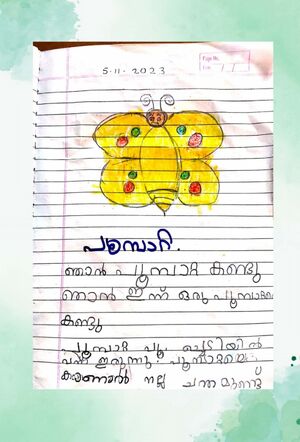 5.11.2023
പൂമ്പാറ്റ.
ഞാൻ പൂമ്പാറ്റ കണ്ടു
ഞാൻ ഇന്ന് ഒരു പൂമ്പാറ്റയെ
കണ്ടു
പൂമ്പാറ്റ പൂ ചെടിയിൽ
വന്ന് ഇരുന്നു. പൂമ്പാറ്റയെ
കാണാൻ നല്ല ചന്തമുണ്ട്